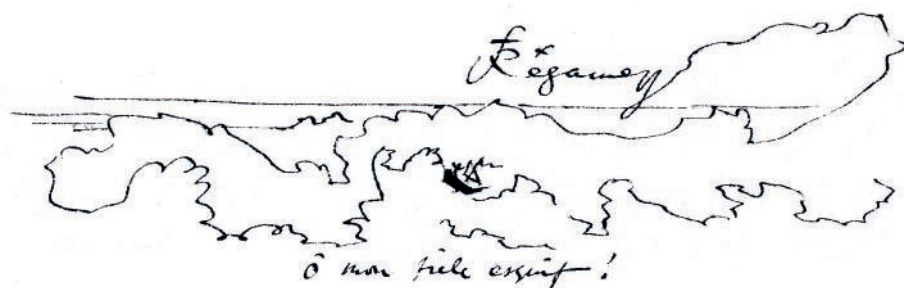 Fx Régamey
ô mon frêle esquif !